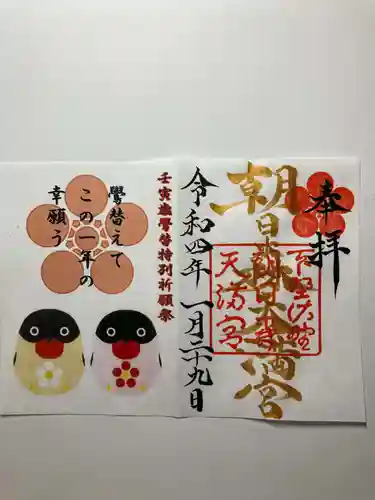 奉拝
朝日森天満宮
下野佐野
朝日森
天満宮
令和四年一月二十九日
壬寅歳鷽替特別祈願祭
鷽替えて
この一年の
幸願う